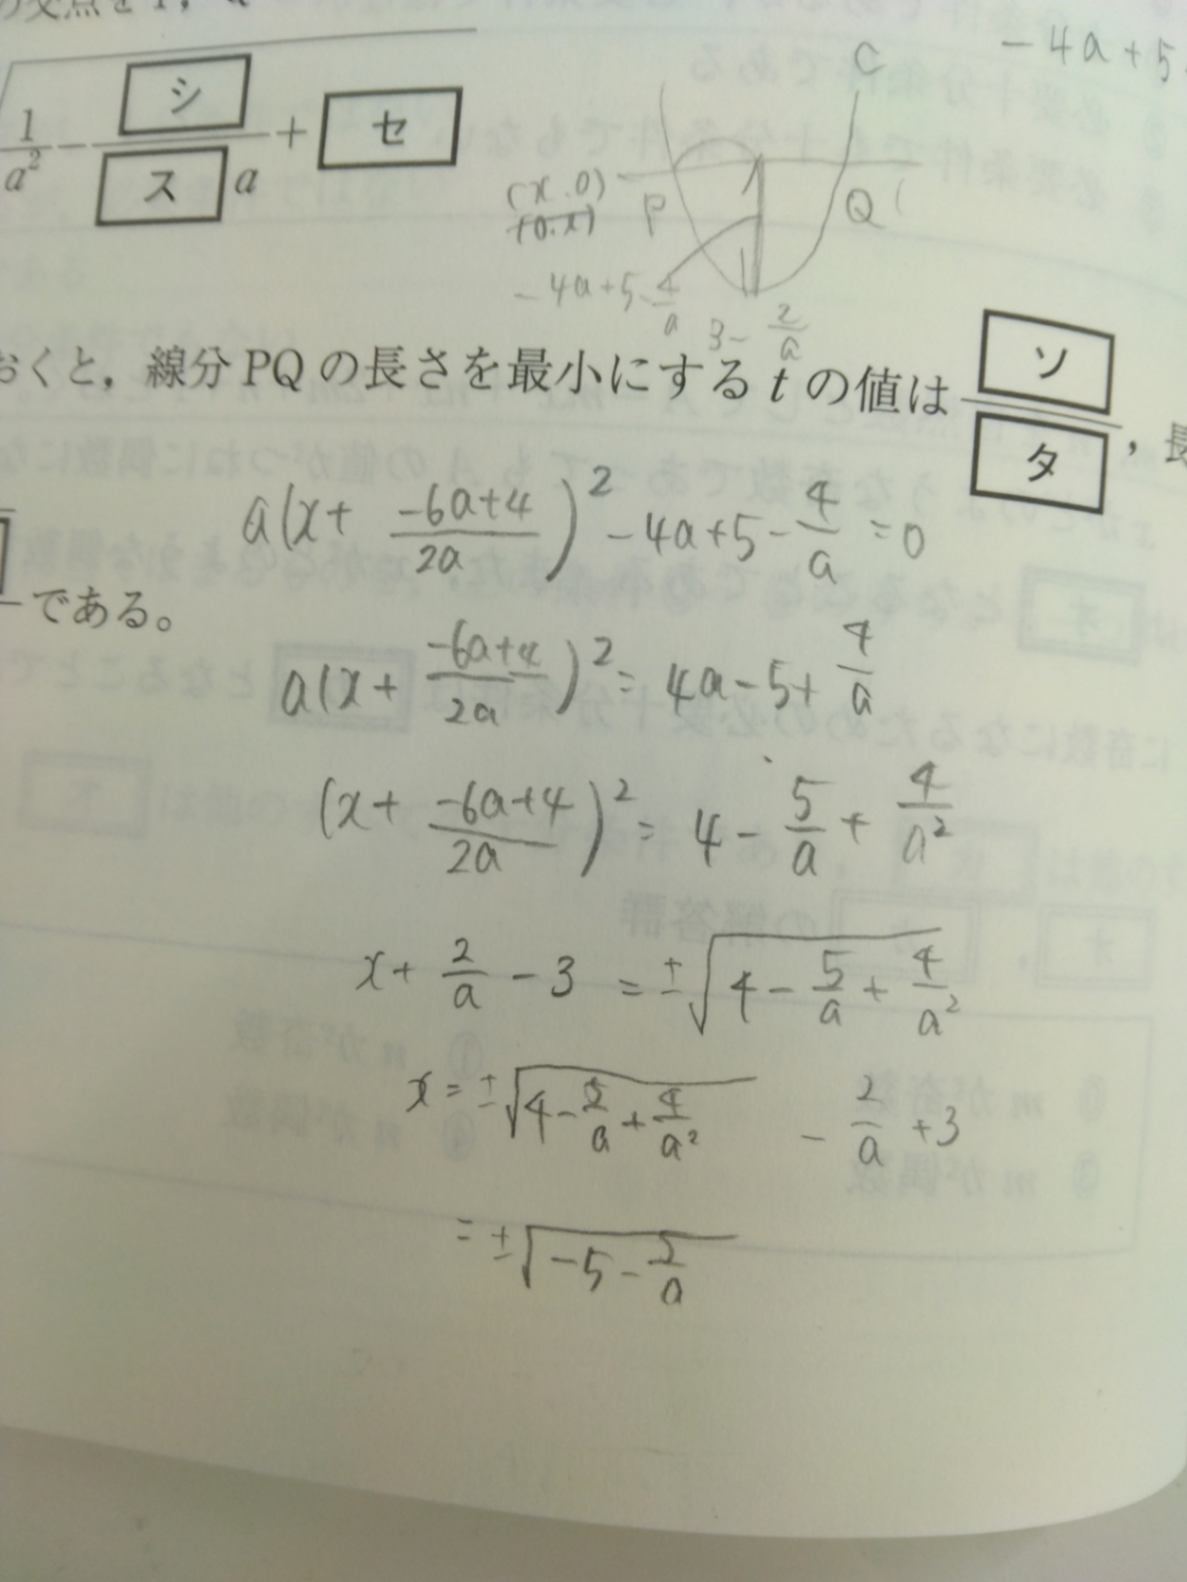 の交点を
-4a+5
1/a² - シ/ス a + セ
C
(x.0)
P
Q
-4a+5-4/a
3-2/a
おくと，線分PQの長さを最小にする t の値は ソ/タ ，長
a(x+ (-6a+4)/2a )² -4a+5-4/a =0
である。
a(x+ (-6a+4)/2a )² = 4a-5+4/a
(x+ (-6a+4)/2a )² = 4-5/a+4/a²
x+ 2/a -3 = ±√(4-5/a+4/a²)
x= ±√(4-5/a+4/a²) -2/a +3
= ±√(-5-2/a)